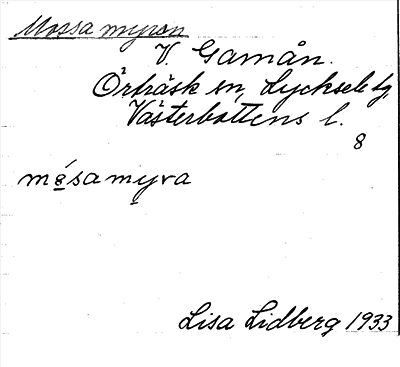 Mossa myran
V. Gamån.
Örträsk sn, Lycksele tg
Västerbottens l.
8
mósamyra
Lisa Lidberg 1933